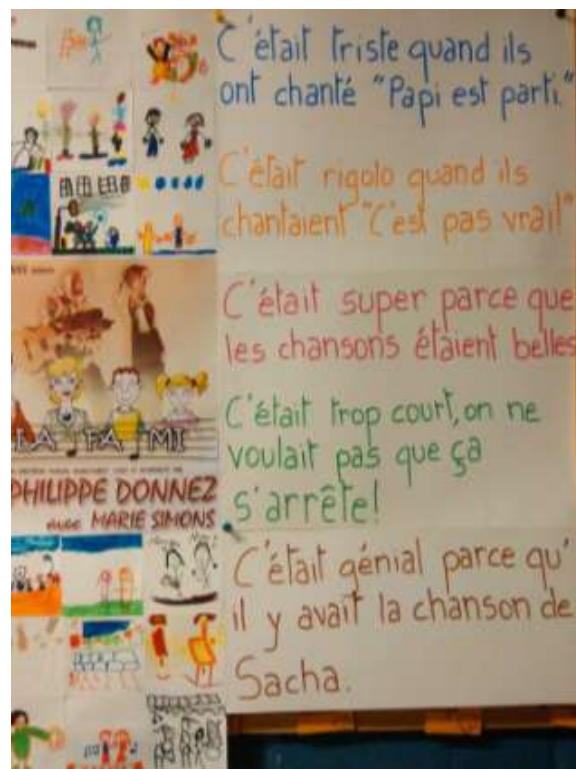 C'était triste quand ils
ont chanté "Papi est parti."
C'était rigolo quand ils
chantaient "C'est pas vrai!"
C'était super parce que
les chansons étaient belles
C'était trop court, on ne
voulait pas que ça
s'arrête!
C'était génial parce qu'
il y avait la chanson de
Sacha.
LA FA MI
PHILIPPE DONNEZ
avec MARIE SIMONS